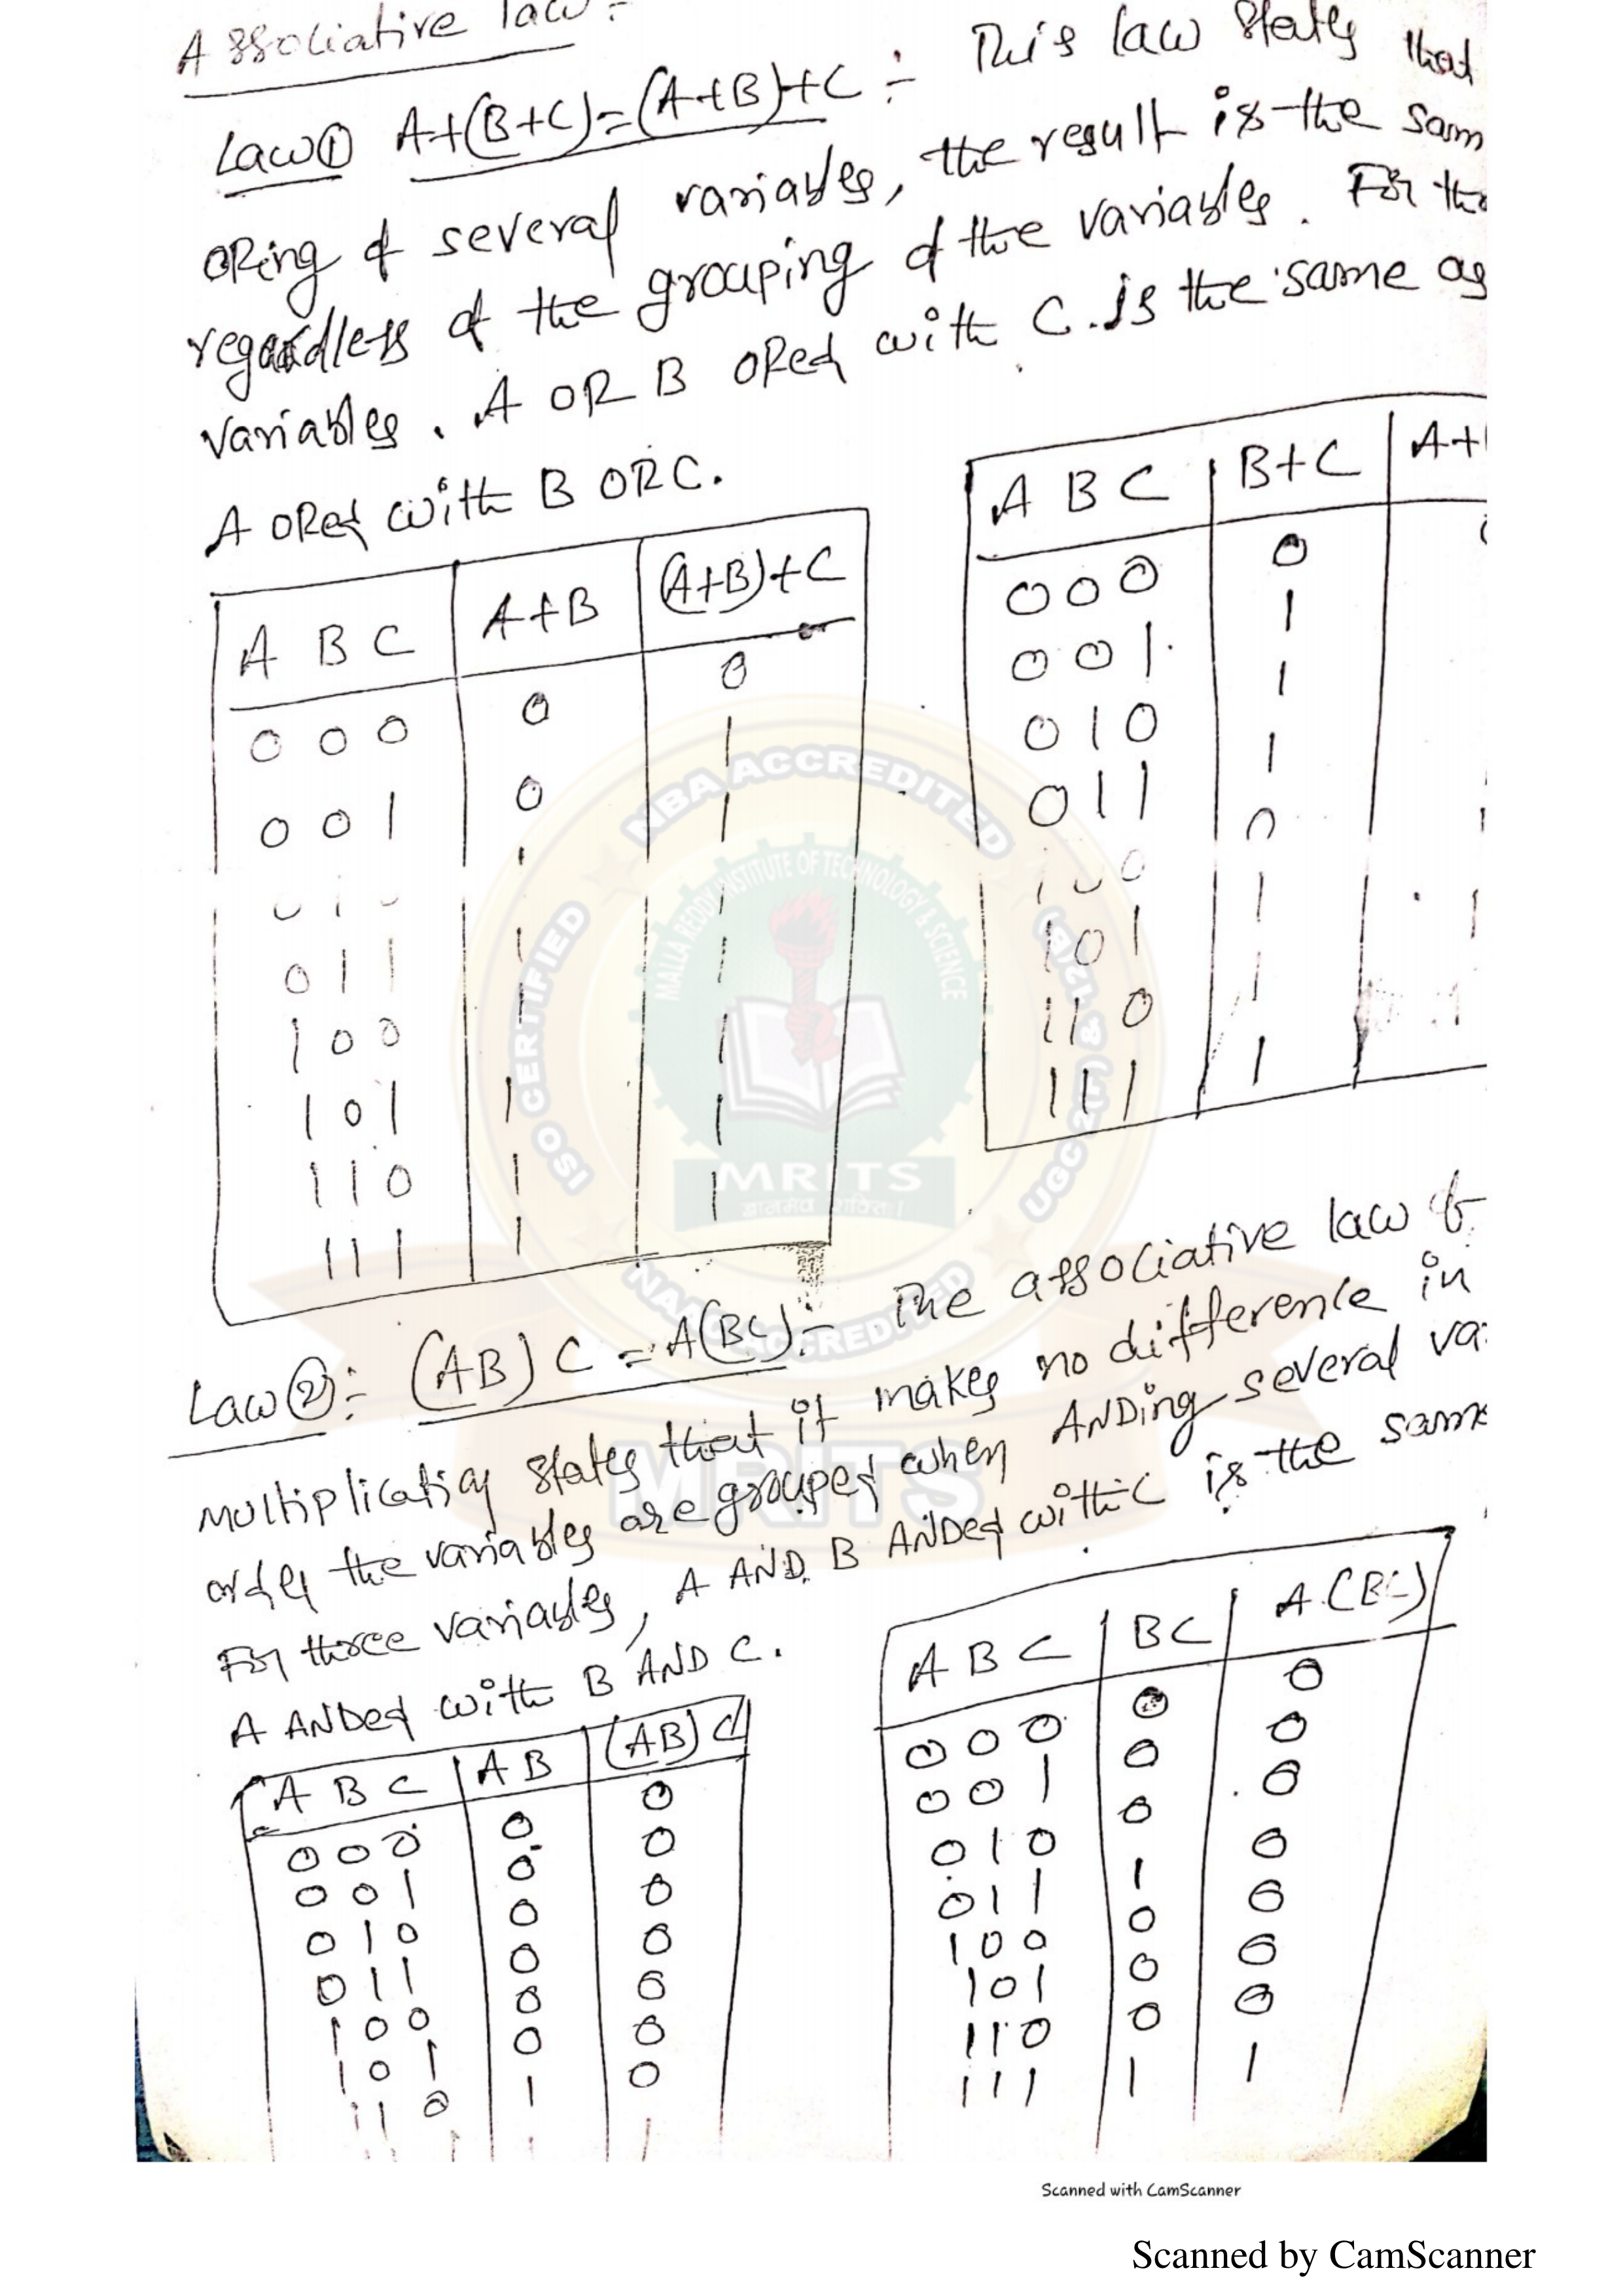 Associative law:-
Law① A+(B+C)=(A+B)+C :- This law states that
ORing of several variables, the result is the sam
regardless of the grouping of the variables. For the
variables. A OR B ORed with C. is the same as
A ORed with B OR C.
A B C A+B (A+B)+C
0 0 0 0 0
0 0 1 0 1
0 1 0 1 1
0 1 1 1 1
1 0 0 1 1
1 0 1 1 1
1 1 0 1 1
1 1 1 1
A B C B+C A+
0 0 0 0
0 0 1 1
0 1 0 1
0 1 1 1
1 0 0 0
1 0 1 1
1 1 0 1
1 1 1 1
Law②:- (AB)C = A(BC):- The associative law of
multiplication states that it makes no difference in
order the variables are grouped when ANDing several va
For three variables, A AND B ANDed with C is the same
A ANDed with B AND C.
A B C AB (AB)C
0 0 0 0 0
0 0 1 0 0
0 1 0 0 0
0 1 1 0 0
1 0 0 0 0
1 0 1 0 0
1 1 0 1 0
1 1 1 1 1
A B C BC A(BC)
0 0 0 0 0
0 0 1 0 0
0 1 0 0 0
0 1 1 1 0
1 0 0 0 0
1 0 1 0 0
1 1 0 0 0
1 1 1 1 1
NBA ACCREDITED
OSI CERTIFIED
UGC 2(f) & 12(B)
NAAC ACCREDITED
MALLA REDDY INSTITUTE OF TECHNOLOGY & SCIENCE
MRITS
MRITS
Scanned with CamScanner
Scanned by CamScanner